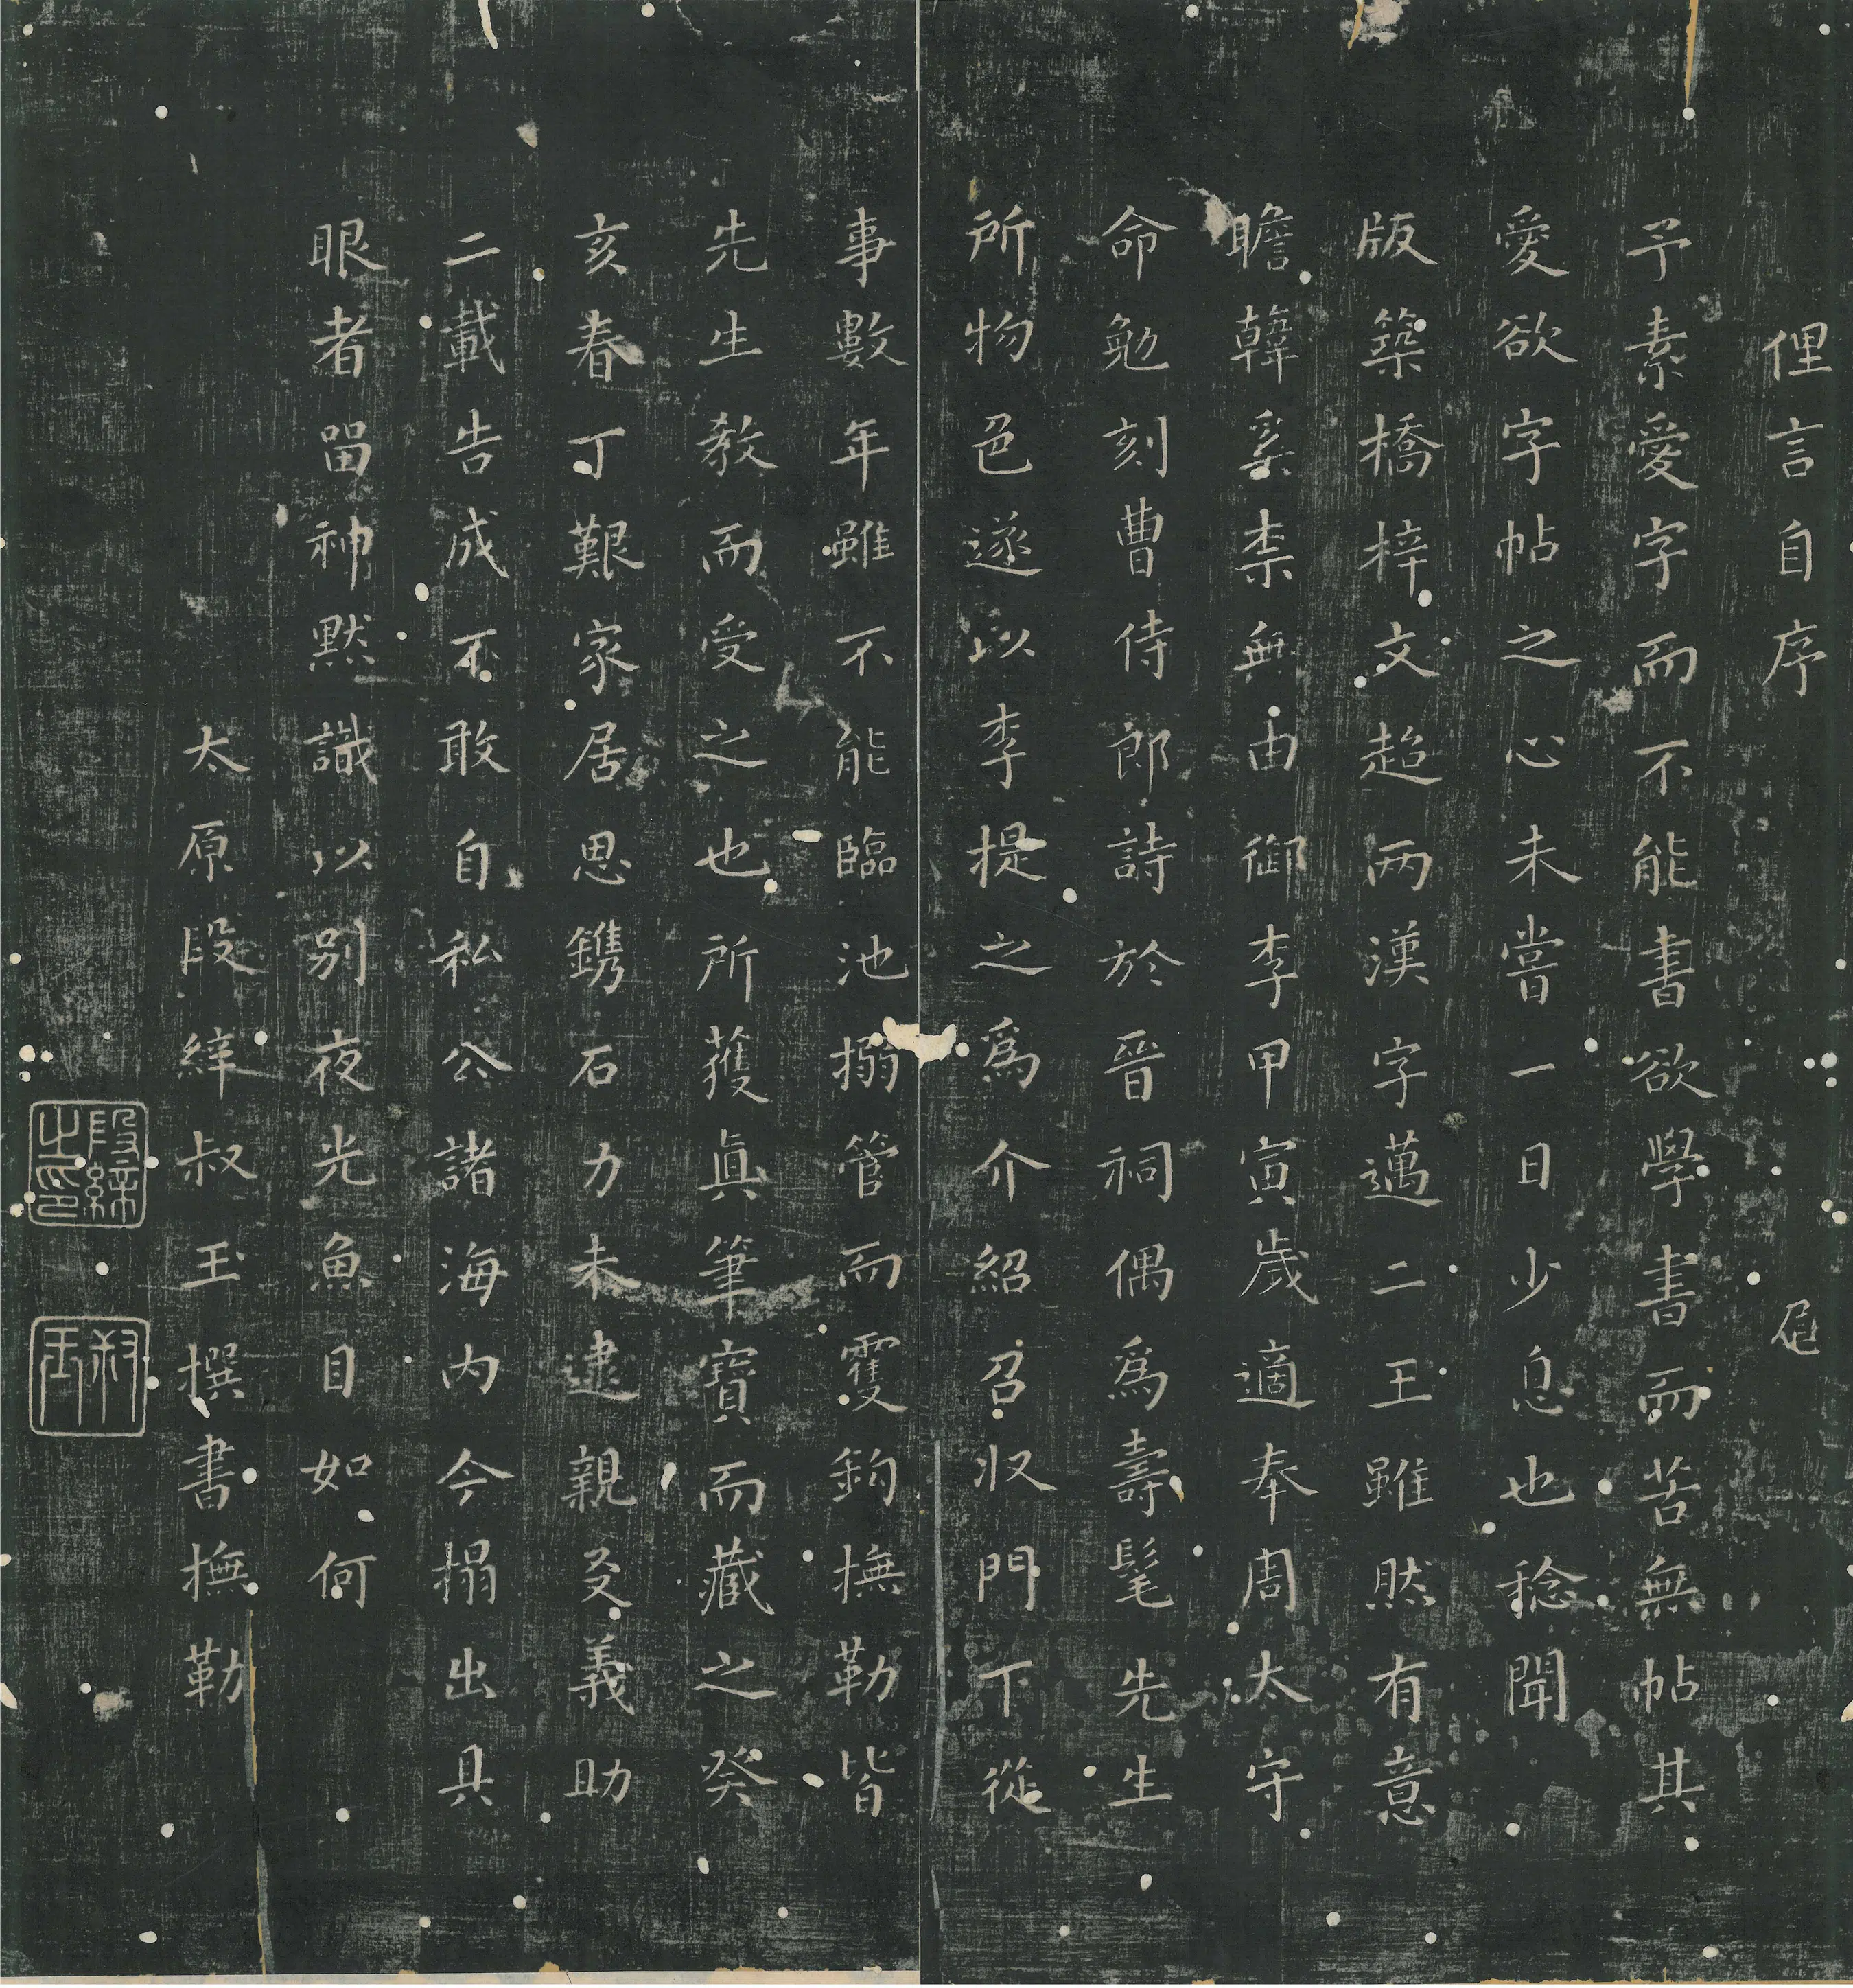 俚言自序
予素愛字而不能書欲學書而苦無帖其
愛欲字帖之心未嘗一日少息也稔聞
版築橋梓文超兩漢字邁二王雖然有意
瞻韓奚柰無由御李甲寅歲適奉周太守
命勉刻曹侍郎詩於晉祠偶為壽髦先生
所物色遂以李提之為介紹召收門下從
事數年雖不能臨池搦管而雙鉤撫勒皆
先生教而受之也所獲真筆寶而藏之癸
亥春丁艱家居思鐫石力未逮親友義助
二載告成不敢自私公諸海内今搨出具
眼者留神默識以別夜光魚目如何
太原段絳叔玉撰書撫勒
段絳之印
叔玉